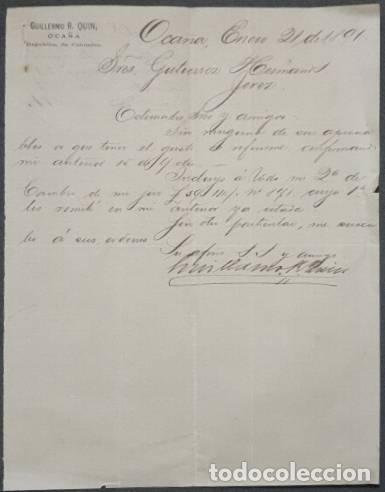 GUILLERMO R. QUIN,
OCAÑA
República de Colombia.
Ocaña, Enero 21 de 1891
Sres. Gutierrez Hermanos
Jerez
Estimados Sres y amigos
Sin ninguna de sus aprecia
bles a que tener el gusto de referirme, confirmando
mi anterior de
Incluyo á Uds mi 2ª de
Cambio de mi por £50 Nº cuya 1ª
les remití en mi anterior ya citada
Sin otro particular, me
á sus ordenes
Su afmo S. S. y amigo
Guillermo R. Quin
todocoleccion.net